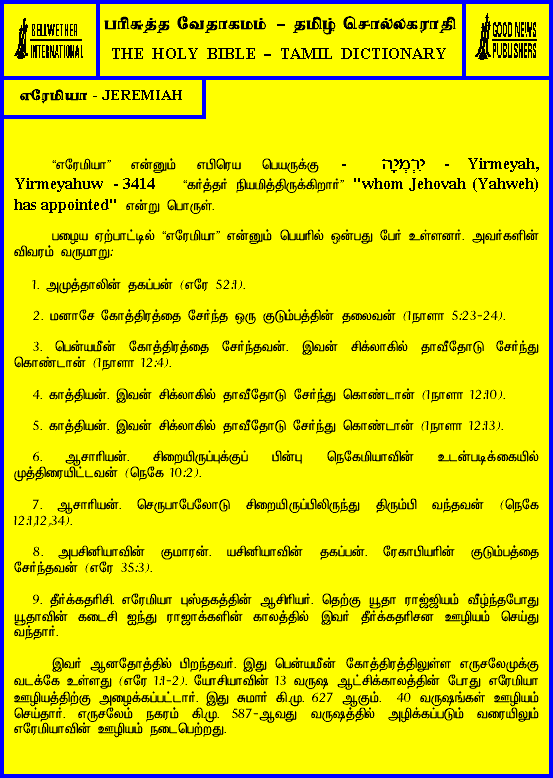 BELLWETHER
INTERNATIONAL
பரிசுத்த வேதாகமம் – தமிழ் சொல்லகராதி
THE HOLY BIBLE – TAMIL DICTIONARY
GOOD NEWS
PUBLISHERS
எரேமியா - JEREMIAH
“எரேமியா” என்னும் எபிரெய பெயருக்கு - יִרְמְיָה - Yirmeyah,
Yirmeyahuw - 3414 “கர்த்தர் நியமித்திருக்கிறார்” "whom Jehovah (Yahweh)
has appointed" என்று பொருள்.
பழைய ஏற்பாட்டில் “எரேமியா” என்னும் பெயரில் ஒன்பது பேர் உள்ளனர். அவர்களின்
விவரம் வருமாறு:
1. அமுத்தாலின் தகப்பன் (எரே 52:1).
2. மனாசே கோத்திரத்தை சேர்ந்த ஒரு குடும்பத்தின் தலைவன் (1நாளா 5:23-24).
3. பென்யமீன் கோத்திரத்தை சேர்ந்தவன். இவன் சிக்லாகில் தாவீதோடு சேர்ந்து
கொண்டான் (1நாளா 12:4).
4. காத்தியன். இவன் சிக்லாகில் தாவீதோடு சேர்ந்து கொண்டான் (1நாளா 12:10).
5. காத்தியன். இவன் சிக்லாகில் தாவீதோடு சேர்ந்து கொண்டான் (1நாளா 12:13).
6. ஆசாரியன். சிறையிருப்புக்குப் பின்பு நெகேமியாவின் உடன்படிக்கையில்
முத்திரையிட்டவன் (நெகே 10:2).
7. ஆசாரியன். செருபாபேலோடு சிறையிருப்பிலிருந்து திரும்பி வந்தவன் (நெகே
12:1,12,34).
8. அபசினியாவின் குமாரன். யசினியாவின் தகப்பன். ரேகாபியரின் குடும்பத்தை
சேர்ந்தவன் (எரே 35:3).
9. தீர்க்கதரிசி. எரேமியா புஸ்தகத்தின் ஆசிரியர். தெற்கு யூதா ராஜ்ஜியம் வீழ்ந்தபோது
யூதாவின் கடைசி ஐந்து ராஜாக்களின் காலத்தில் இவர் தீர்க்கதரிசன ஊழியம் செய்து
வந்தார்.
இவர் ஆனதோத்தில் பிறந்தவர். இது பென்யமீன் கோத்திரத்திலுள்ள எருசலேமுக்கு
வடக்கே உள்ளது (எரே 1:1-2). யோசியாவின் 13 வருஷ ஆட்சிக்காலத்தின் போது எரேமியா
ஊழியத்திற்கு அழைக்கப்பட்டார். இது சுமார் கி.மு. 627 ஆகும். 40 வருஷங்கள் ஊழியம்
செய்தார். எருசலேம் நகரம் கி.மு. 587-ஆவது வருஷத்தில் அழிக்கப்படும் வரையிலும்
எரேமியாவின் ஊழியம் நடைபெற்றது.